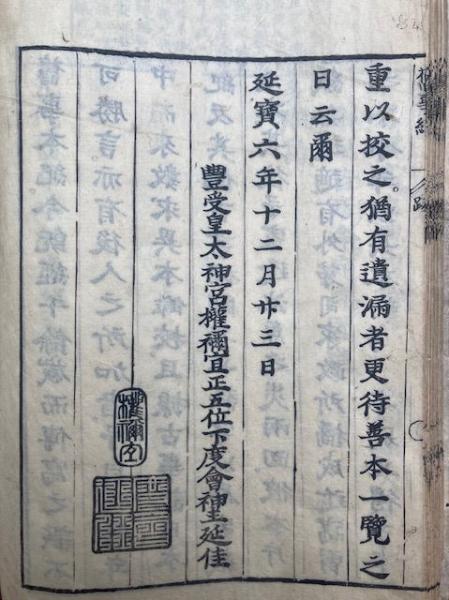 重以挍之。猶有遺漏者更待善本一覽之
日云爾
延寶六年十二月廿三日
豐受皇太神宮權禰宜正五位下度會神主延佳
舊事紀
跋
權禰宜